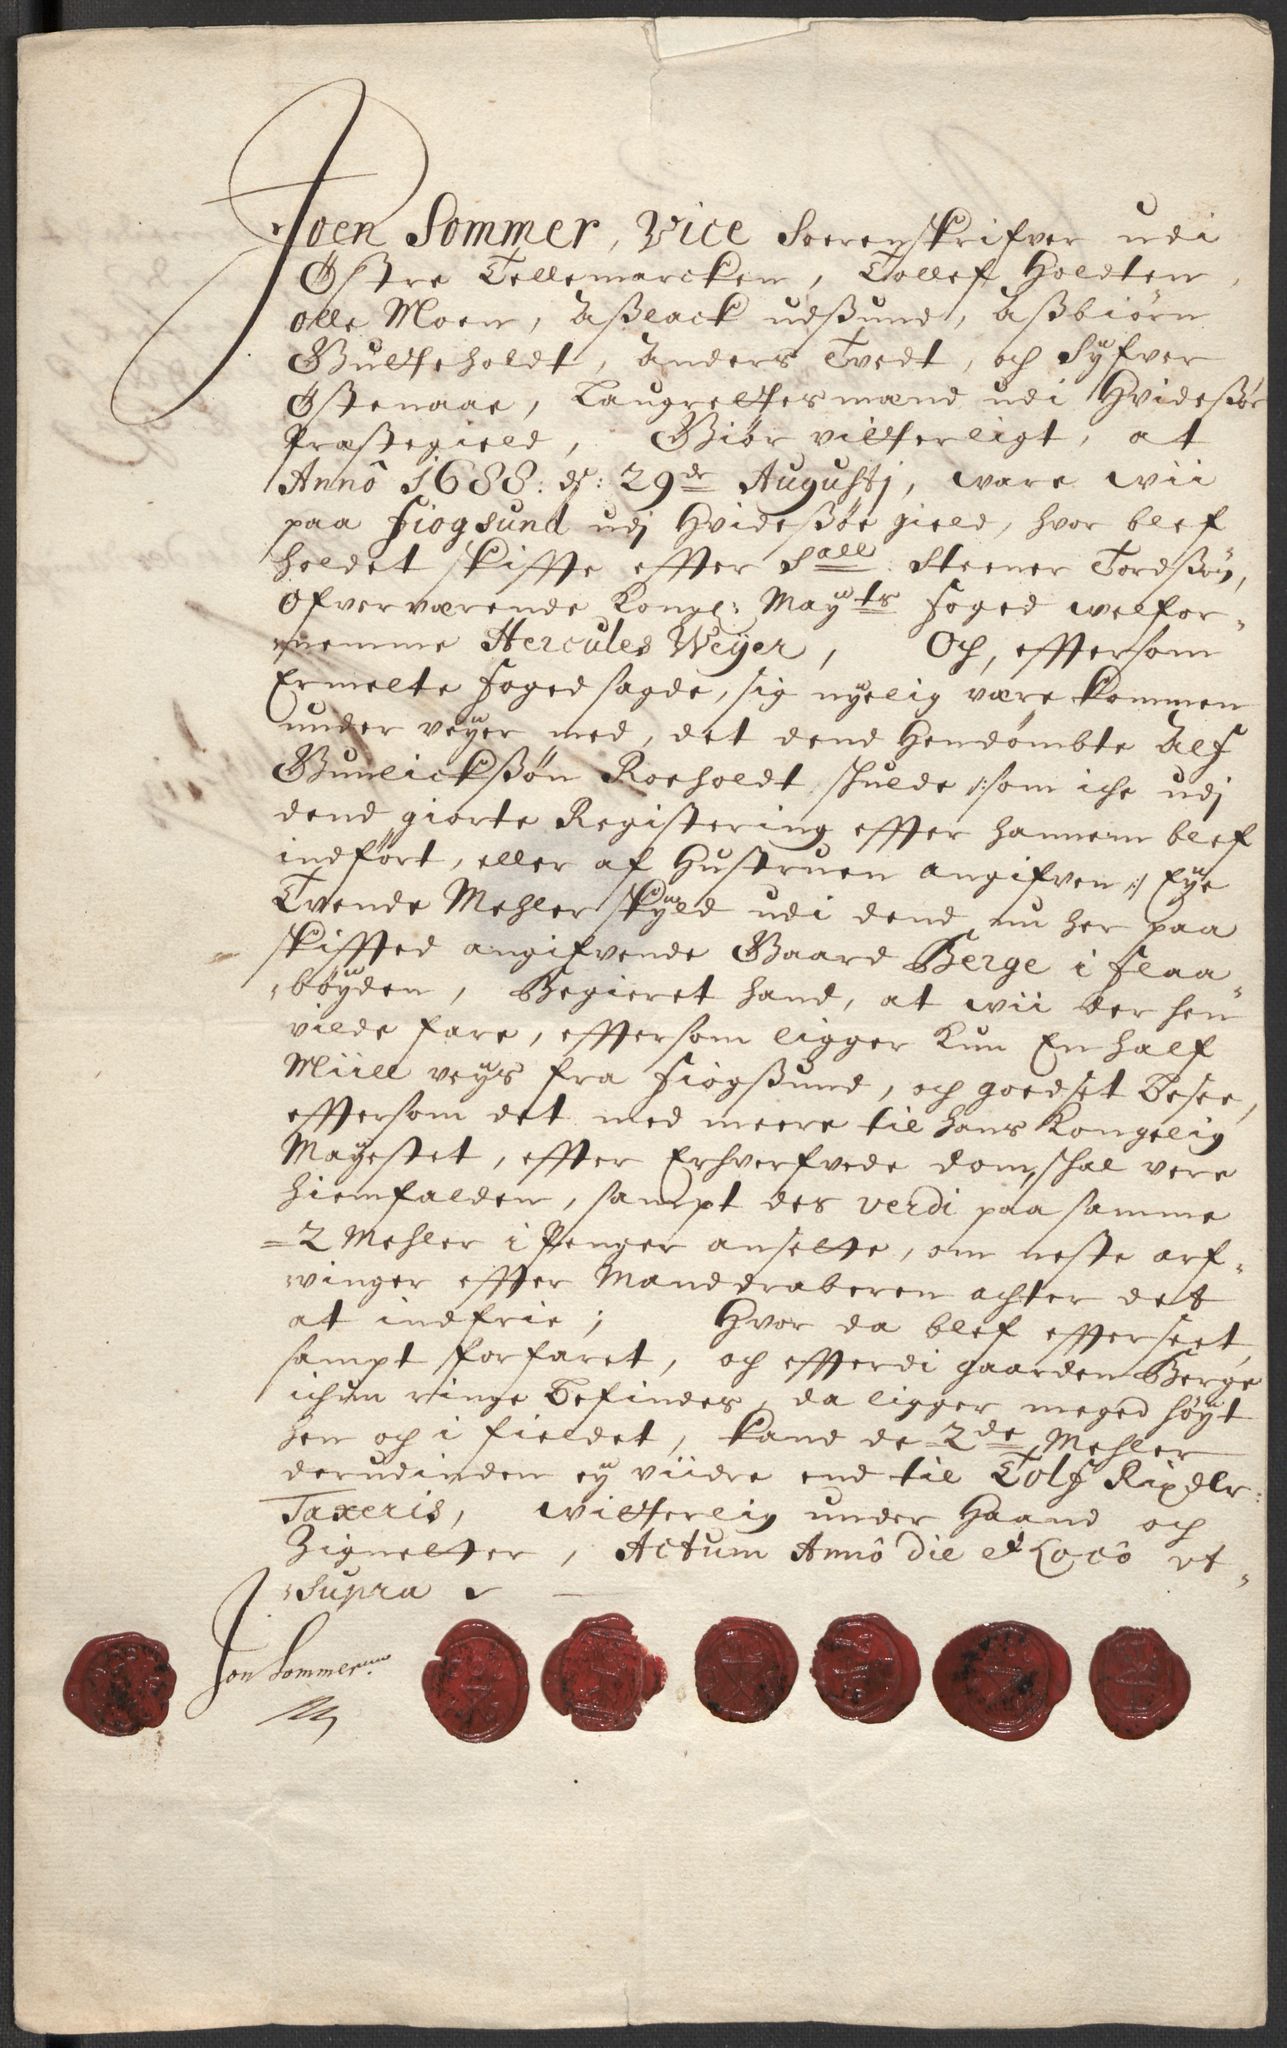 Joen Sommer, Vice Soerenskrifver udi
Østre Tellemarcken, Tollef Holdten,
Olle Moen, Aßlack udßund, Aßbiörn
Gulteholdt, Anders Tvedt, och Syfver
Østenaae, Laugrettesmænd udi Hvideßöe
Præstegield, Giör vitterligt, at
Annô 1688: dͤ: 29de Augustj, ware wii
paa Fiogsund udj Hvideßöe gield, hvor blef
holdet skiffte effter Sall: Steener Tordßön,
Ofverværende Kongl: Mayts Foged welfor-
nemme Hercules Weyer, Och, efftersom
Ermelte Foged sagde, sig nyelig være kommen
under veyer med, det dend Hendömbte Alf
Gunlickßön Roeholdt skulde /:som iche udj
dend giorte Registering effter hannem blef
indfört, eller af Hustruen angifven:/ Eye
Tvende Mehler skyld udi dend nu her paa
skiffted angifvende Gaard Berge i Flaa-
böyden, Begieret hand, at wii der hen
vilde fare, efftersom ligger kun En half
Miill veys fra Fiogßund, och goedset Besee,
efftersom det med meere til hans Kongelig
Mayestet, effter Erhverfvede dom, skal vere
hiemfalden, sampt des verdi paa samme
2 Mehler i Penger ansette, om neste arf-
vinger effter Manddraberen achter det
at indfrie; Hvor da blef effterseet,
sampt forfaret, och effterdi gaarden Berge
ichun ringe Befindes, da ligger meged höyt
hen op i fieldet, kand de 2de Mehler
derudinden ey viidre end til Tolf Rixdlr:
Taxeris, witterlig under Haand och
Zignetter, Actum Annô die et Locô ut-
supra
Jon Sommer